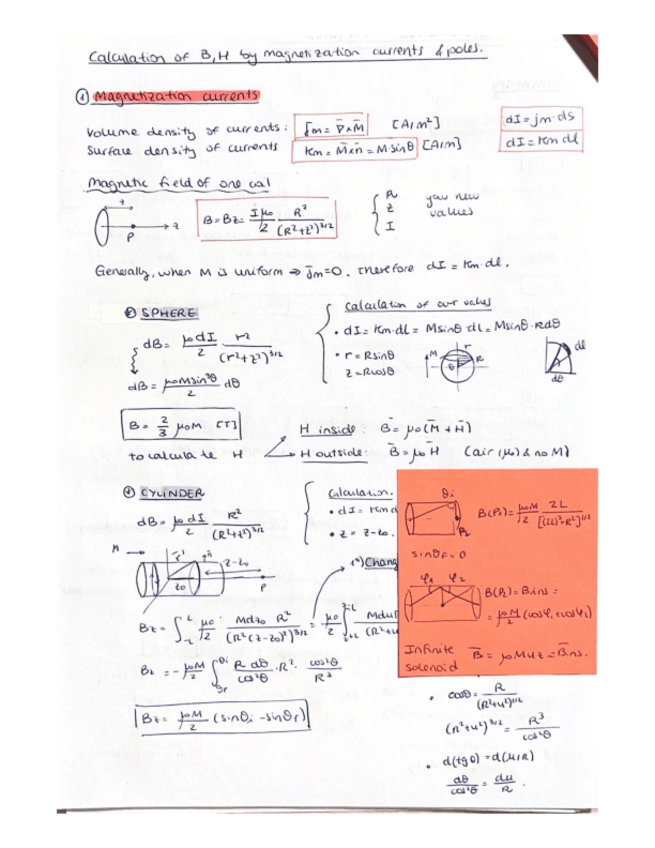 Calculation of B, H by magnetization currents & poles.
① Magnetization currents
Volume density of currents: J̄m = ∇̄×M̄ [A/m²] dI = jm·ds
Surface density of currents Km = M̄×n̄ = M·sinθ [A/m] dI = Km dl
Magnetic field of one coil
z
P
z
B = Bz = Iμo/2 R²/(R²+z²)^3/2
R
z
I
new
values
Generally, when M is uniform ⇒ J̄m=0. Therefore dI = Km·dl.
SPHERE
Calculation of our values
dB = μo dI/2 r²/(r²+z²)^3/2
• dI = Km·dl = M sinθ dl = M sinθ·R dθ
• r = R sinθ
z = R cosθ
M r θ R
dl
dθ
dB = μo M sin³θ/2 dθ
B = 2/3 μo M [T]
to calculate H
H inside: B̄ = μo (M̄ + H̄)
H outside: B̄ = μo H̄ (air (μo) & no M)
CYLINDER
dB = μo dI/2 R²/(R²+z²)^3/2
Calculation.
• dI = Km d
• z = z-zo.
M
z-zo
zo
P
1*) Chang
Bz = ∫ L -L μo/2 M dzo R²/(R²(z-zo)²)^3/2 = μo/2 ∫ z-L z+L M du R²/(R²+u
Bz = - μo M/2 ∫ θi θf R dθ/cos²θ · R² · cos³θ/R³
Bz = μo M/2 (sinθi - sinθf)
θi
P2
B(P2) = μo M/2 2L/[(2L)²+R²]^1/2
sinθf = 0
φ1 φ2
B(P2) = Bins =
= μo M/2 (cosφ1 + cosφ2)
Infinite
solenoid
B̄ = μo M uz = B̄ins.
• cosθ = R/(R²+u²)^1/2
(R²+u²)^3/2 = R³/cos³θ
• d(tgθ) = d(u/R)
dθ/cos²θ = du/R.